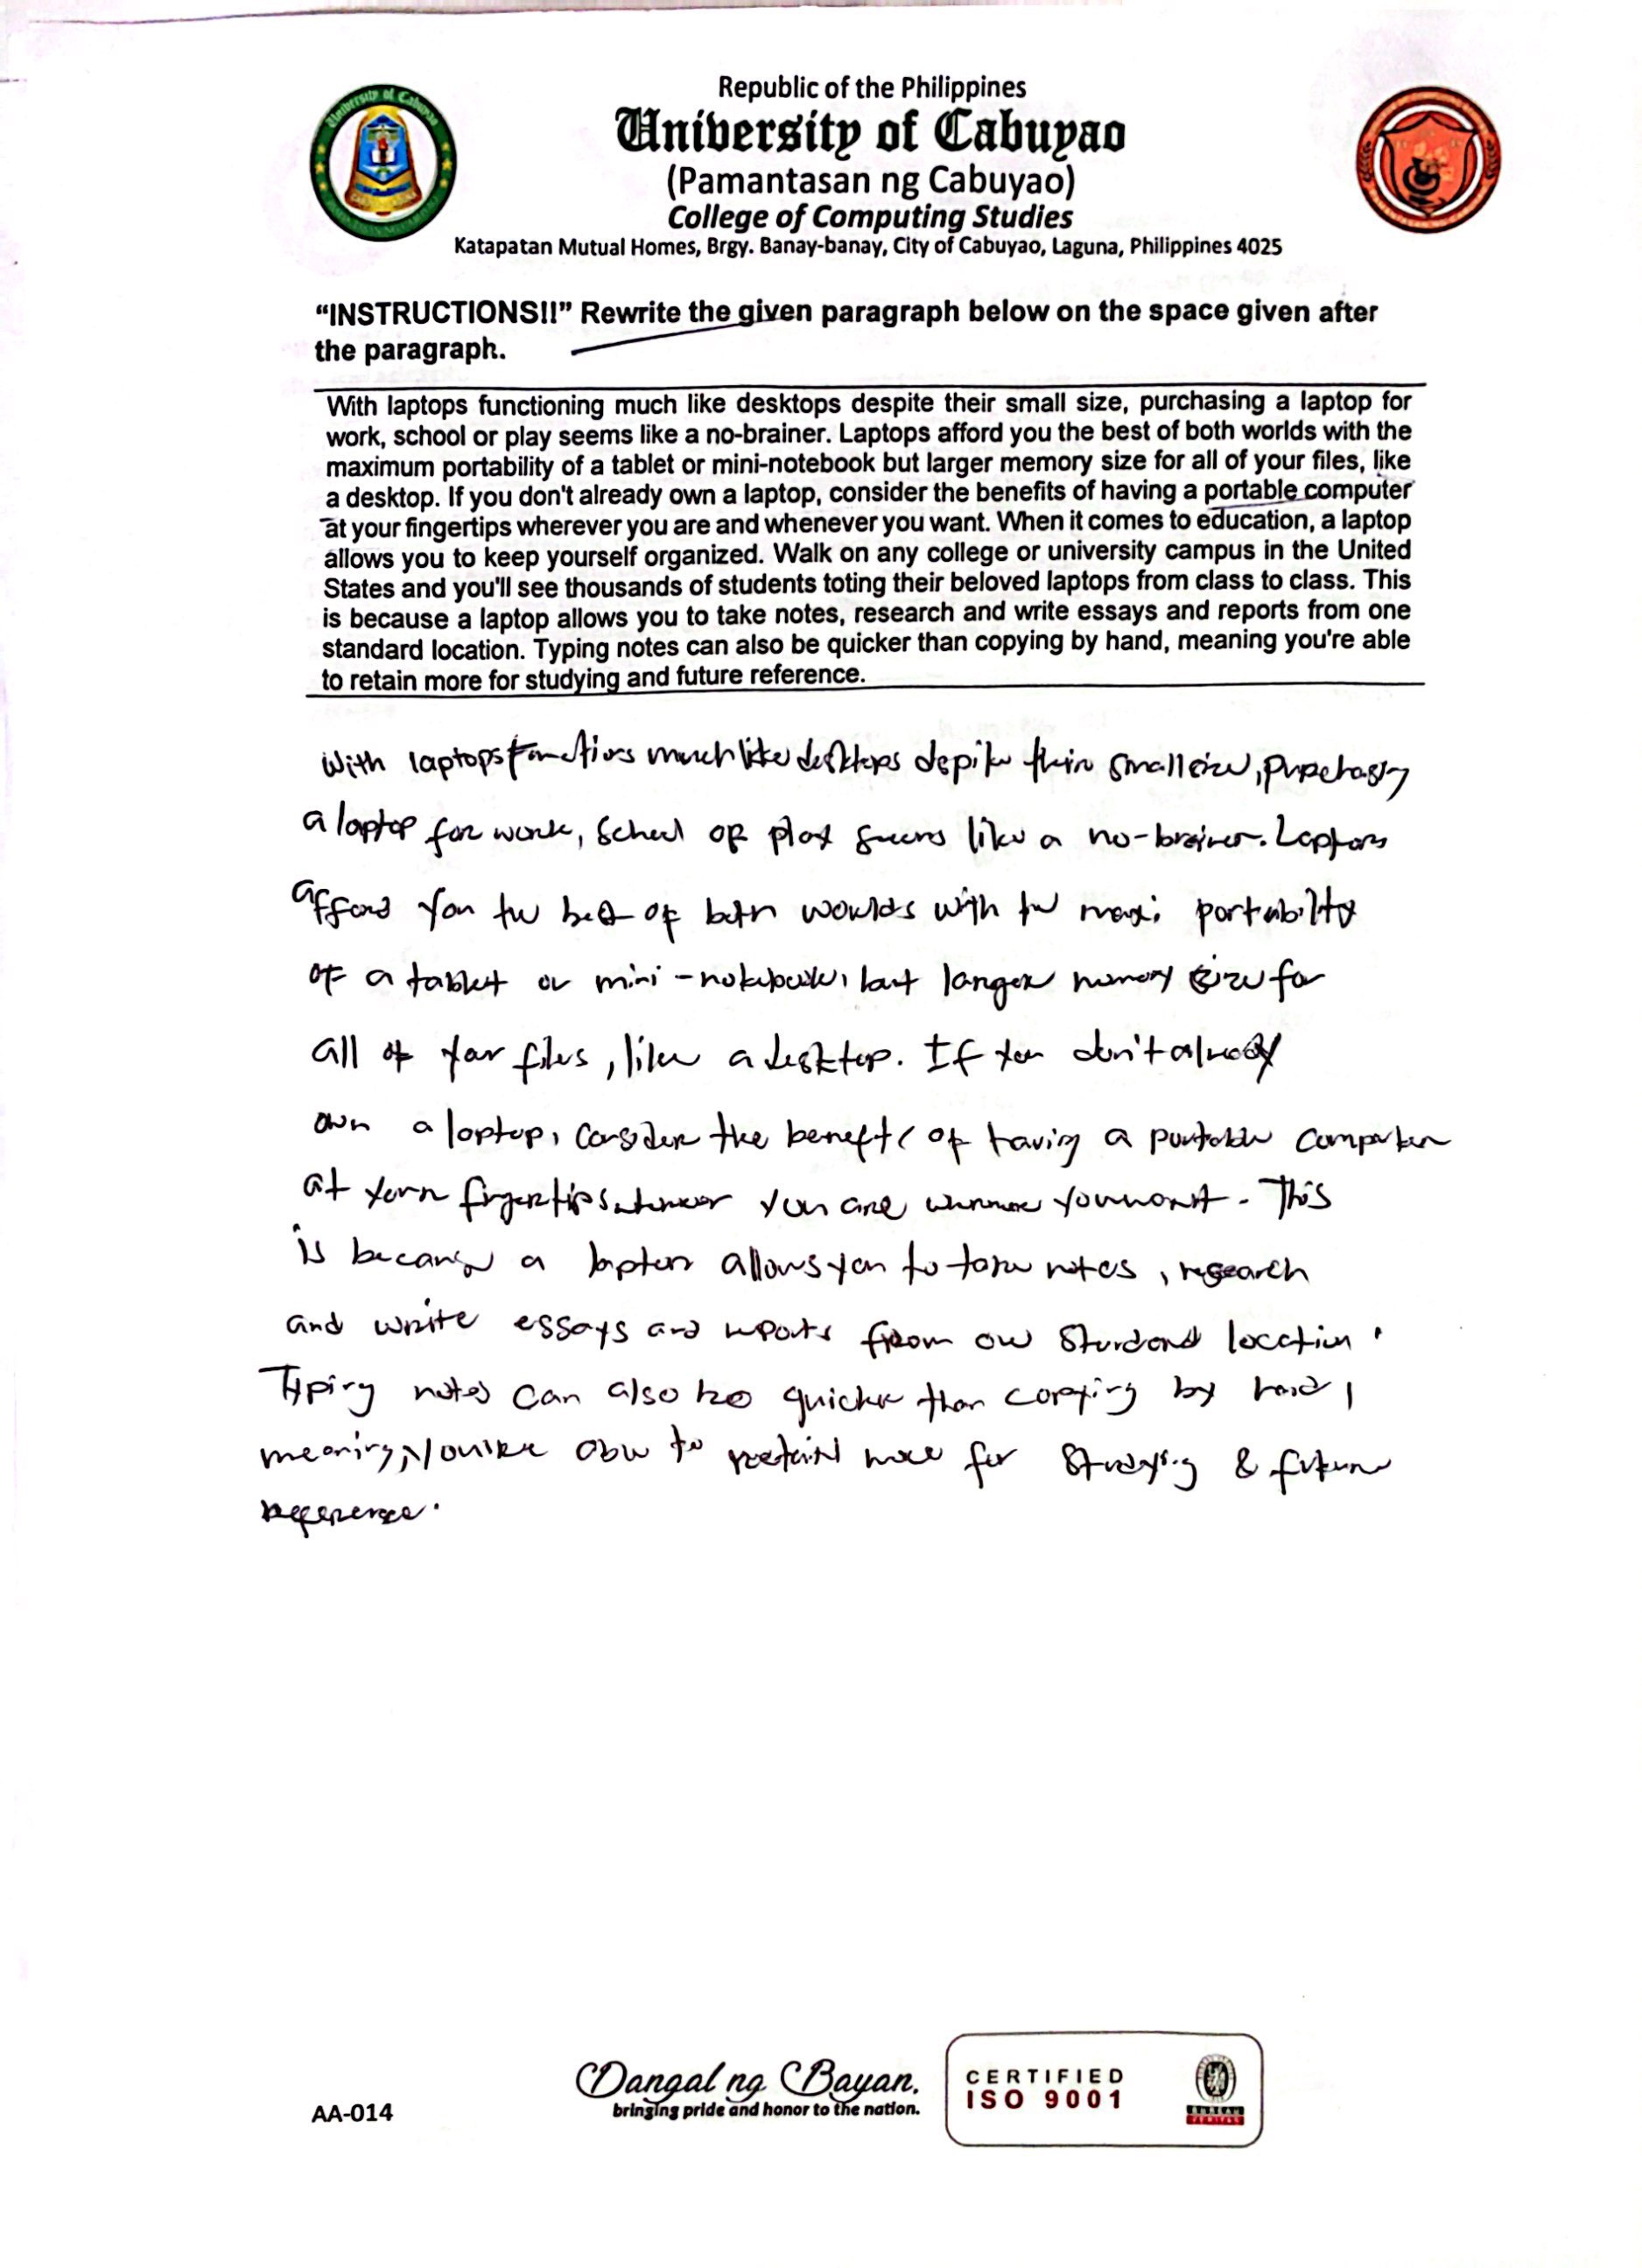 Republic of the Philippines
University of Cabuyao
(Pamantasan ng Cabuyao)
College of Computing Studies
Katapatan Mutual Homes, Brgy. Banay-banay, City of Cabuyao, Laguna, Philippines 4025
“INSTRUCTIONS!!” Rewrite the given paragraph below on the space given after
the paragraph.
With laptops functioning much like desktops despite their small size, purchasing a laptop for
work, school or play seems like a no-brainer. Laptops afford you the best of both worlds with the
maximum portability of a tablet or mini-notebook but larger memory size for all of your files, like
a desktop. If you don't already own a laptop, consider the benefits of having a portable computer
at your fingertips wherever you are and whenever you want. When it comes to education, a laptop
allows you to keep yourself organized. Walk on any college or university campus in the United
States and you'll see thousands of students toting their beloved laptops from class to class. This
is because a laptop allows you to take notes, research and write essays and reports from one
standard location. Typing notes can also be quicker than copying by hand, meaning you're able
to retain more for studying and future reference.
With laptops functions much like desktops depite their small size,
a laptop for work, school or play seems like a no-brainer. Laptops
afford you the best of both woulds with the maxi portability
of a tablet or mini-notebook, but larger memory size for
all of your files, like a desktop. If you don't already
own a laptop, consider the benefits of having a portable computer
at your fingertips you are you want. This
is because a laptop allows you to take notes, research
and write essays and reports from one standard location.
Typing notes can also be quicker than copying by hand,
meaning, able to retain more for studying & future
reference.
AA-014
Dangal ng Bayan.
bringing pride and honor to the nation.
CERTIFIED
ISO 9001
BUREAU
VERITAS